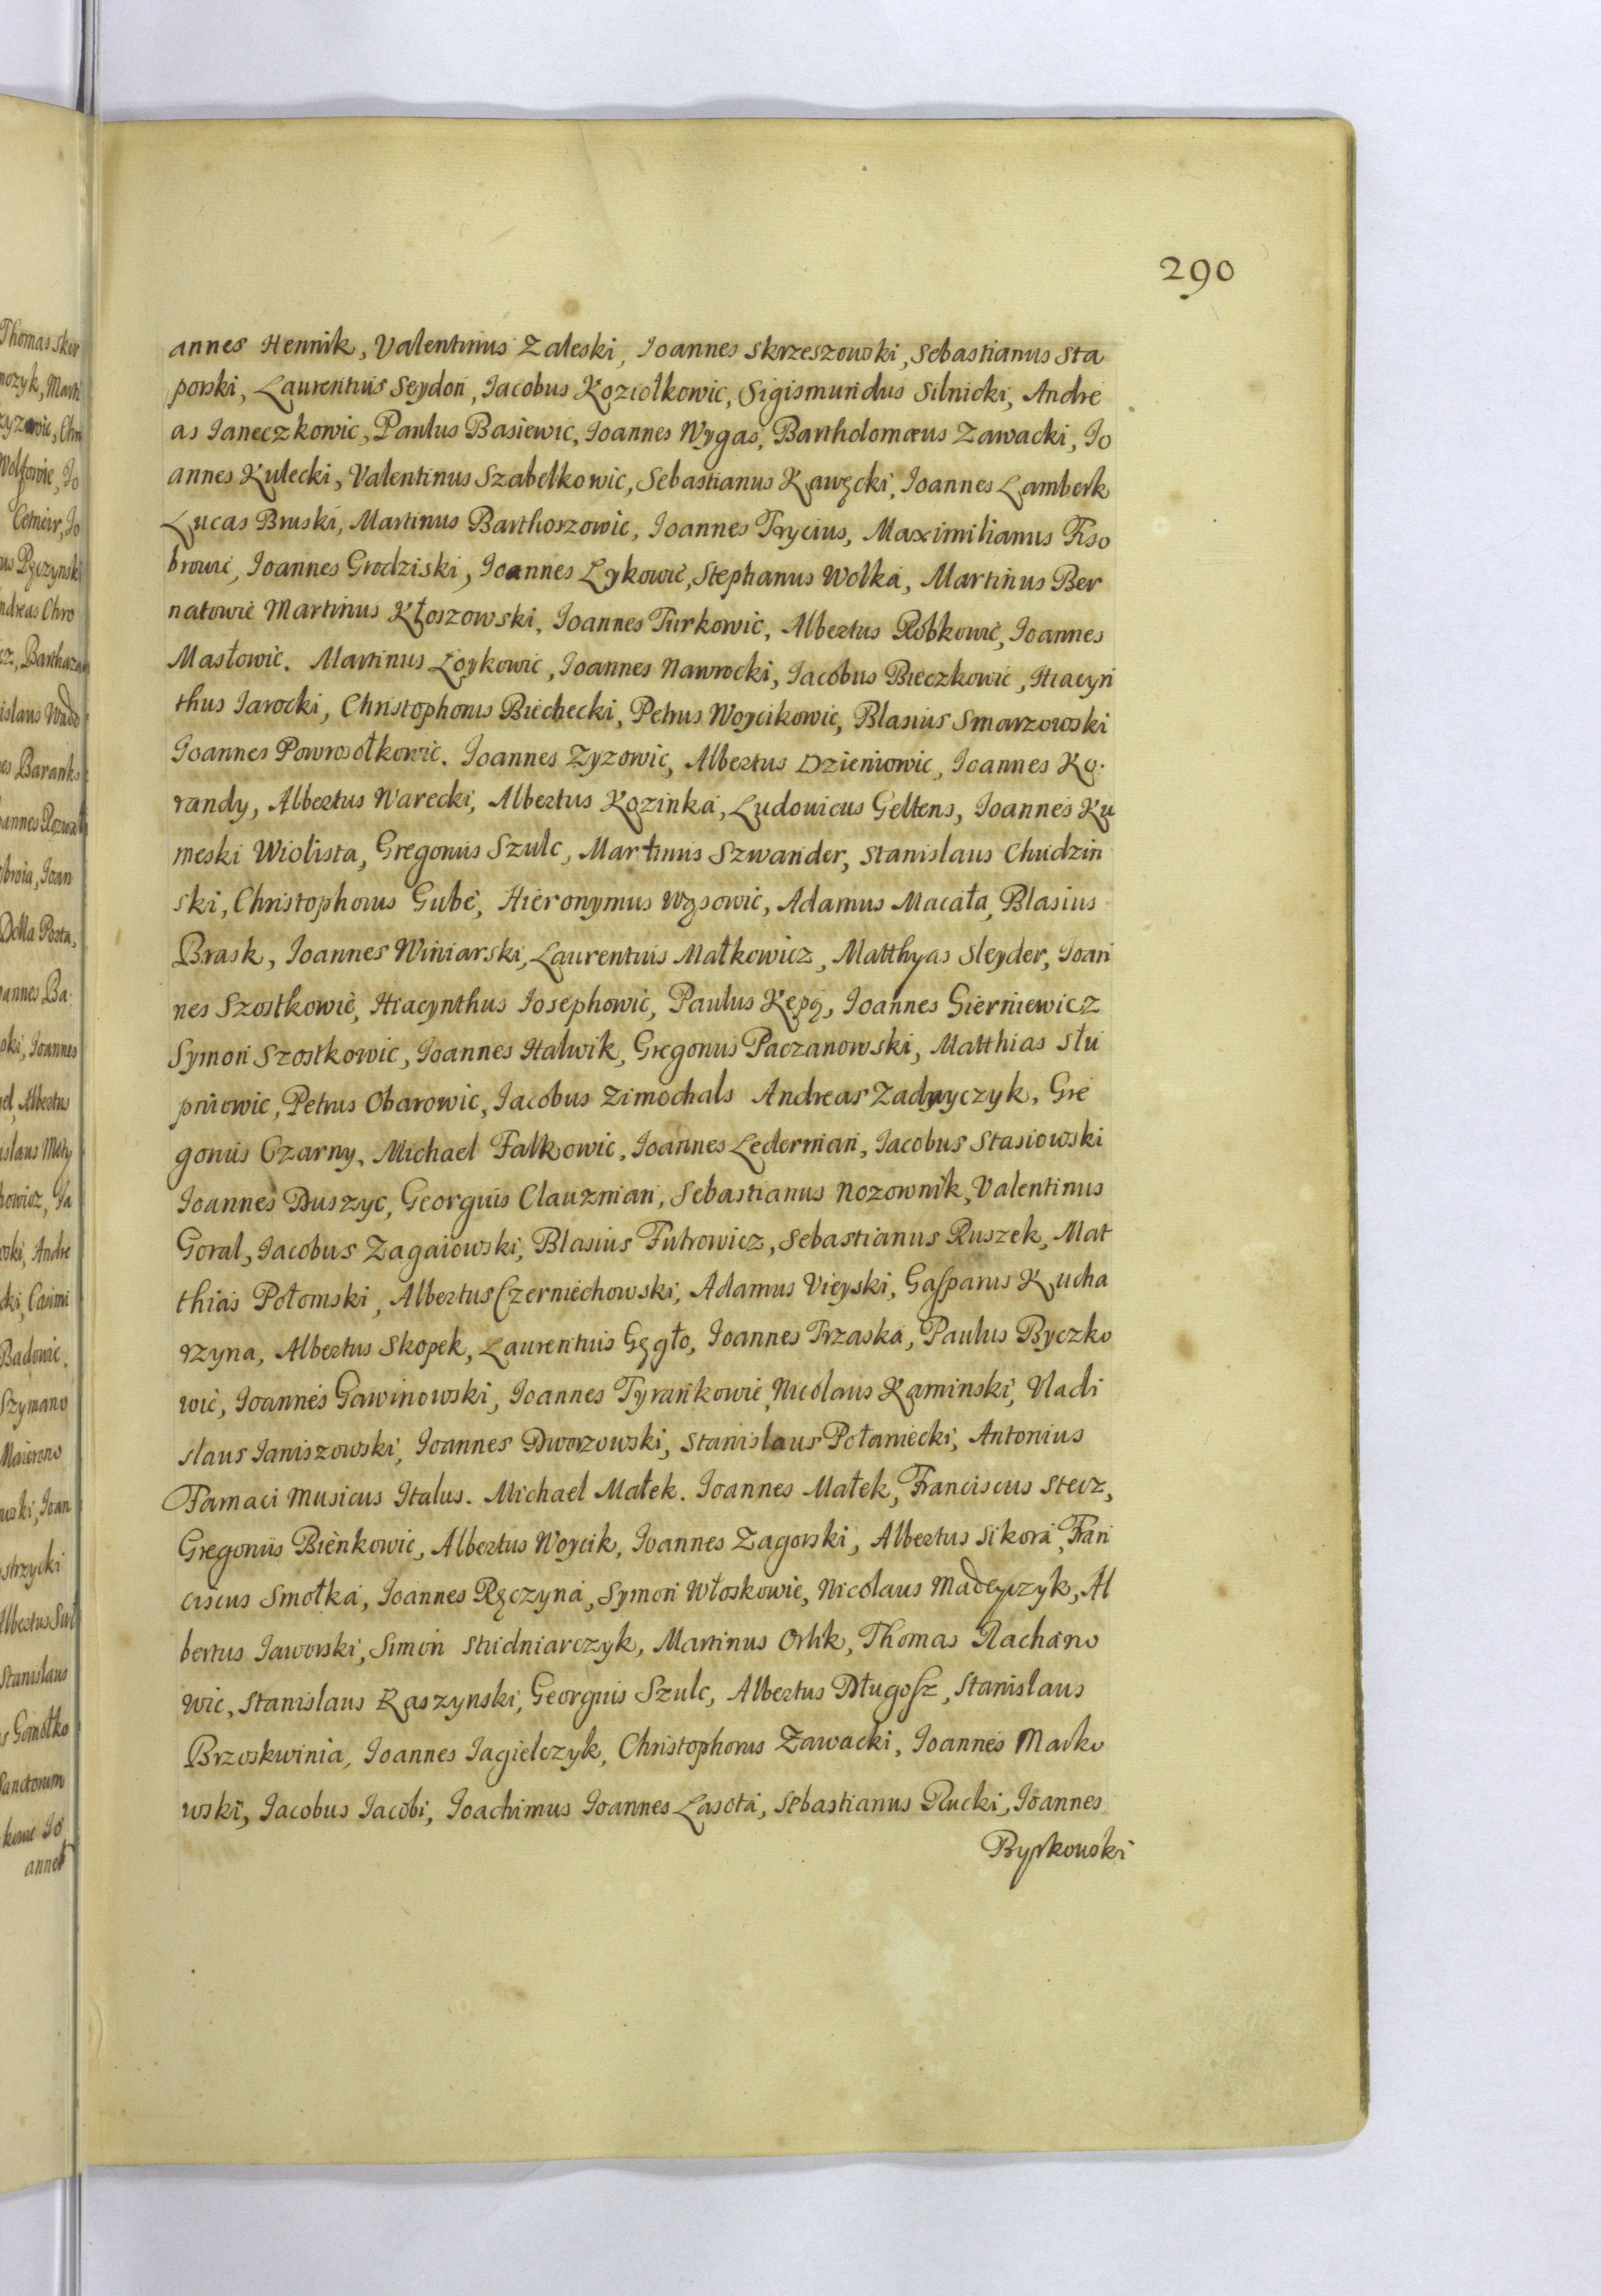 290
annes Hennik, Valentinus Zaleski, Ioannes Skrzeszowski, Sebastianus Sta
porski, Laurentius Seydon, Iacobus Koziołkowic, Sigismundus Silnicki, Andre
as Ianeczkowic, Paulus Basiewic, Ioannes Wygas, Bartholomæus Zawacki, Io
annes Kulecki, Valentinus Szabelkowic, Sebastianus Kawęcki, Ioannes Lamberk
Lucas Bruski, Martinus Barthoszowic, Ioannes Trycius, Maximilianus Fiso
browic, Ioannes Grodziski, Ioannes Lykowic, Stephanus Wolka, Martinus Ber
natowic Martinus Kłoszowski, Ioannes Turkowic, Albertus Robkowic, Ioannes
Masłowic. Martinus Loykowic, Ioannes Nawrocki, Iacobus Bieczkowic, Hiacyn
thus Iarocki, Christophorus Biechecki, Petrus Woycikowic, Blasius Smarzowski
Ioannes Powrosołkowic. Ioannes Zyzowic, Albertus Dzieniowic, Ioannes Ko.
randy, Albertus Warecki, Albertus Kozinka, Ludovicus Geltens, Ioannes Ku
meski Wiolista, Gregorius Szulc, Martinus Szwander, Stanislaus Chudzin
ski, Christophorus Gube, Hieronymus Wąsowic, Adamus Macała, Blasius
Brask, Ioannes Winiarski, Laurentius Małkowicz, Matthyas Sleyder, Ioan
nes Szostkowic, Hiacynthus Iosephowic, Paulus Kępą, Ioannes Gierniewicz
Symon Szostkowic, Ioannes Halwik, Gregorius Paczanowski, Matthias Słu
pniowic, Petrus Obarowic, Iacobus Zimochals Andreas Zadwyczyk, Gre
gorius Czarny, Michael Falkowic, Ioannes Lederman, Iacobus Stasiowski
Ioannes Duszyc, Georgius Clauzman, Sebastianus Nozownik, Valentinus
Goral, Iacobus Zagaiowski, Blasius Futrowicz, Sebastianus Ruszek, Mat
thias Połomski, Albertus Czerniechowski, Adamus Vieyski, Gasparus Kucha
rzyna, Albertus Skopek, Laurentius Gęgło, Ioannes Trzaska, Paulus Byczko
wic, Ioannes Gawinowski, Ioannes Tyrankowic, Nicolaus Kaminski, Vladi
slaus Ianiszowski, Ioannes Dworzowski, Stanislaus Połaniecki, Antonius
Famaci Musicus Italus. Michael Małek. Ioannes Małek, Franciscus Stecz,
Gregorius Bienkowic, Albertus Woycik, Ioannes Zagorski, Albertus Sikora, Fran
ciscus Smołka, Ioannes Ręczyna, Symon Włoskowic, Nicolaus Madeyczyk, Al
bertus Iaworski, Simon Studniarczyk, Martinus Orlik, Thomas Rachano
wic, Stanislaus Raszynski, Georgius Szulc, Albertus Długosz, Stanislaus
Brzoskwinia, Ioannes Iagielczyk, Christophorus Zawacki, Ioannes Marko
wski, Iacobus Iacobi, Ioachimus Ioannes Lasota, Sebastianus Rucki, Ioannes
Rypkowski